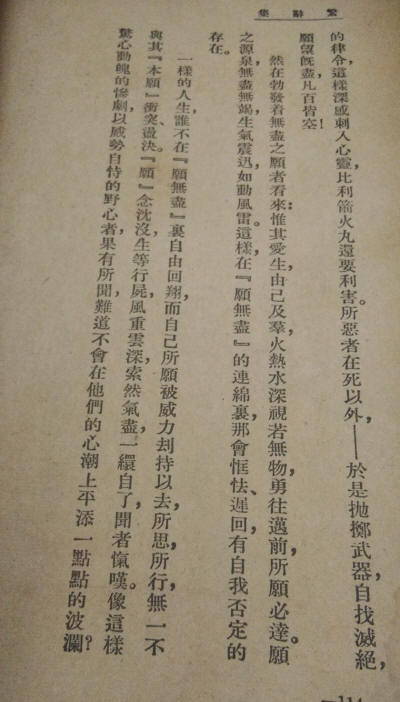 繁辭集
的律令,這樣深感刺人心靈,比利箭火丸還要利害。所惡者在死以外,——於是拋擲武器,自找滅絕,
願望旣盡凡百皆空!
然在勃發着無盡之願者看來:惟其愛生由己及羣,火熱水深視若無物,勇往邁前,所願必達。願
之源泉無盡無竭,生氣震迅,如動風雷。這樣,在『願無盡』的連綿裏,那會恇怯、遲回,有自我否定的
存在。
一樣的人生誰不在『願無盡』裏自由回翔,而自己所願被威力刦持以去,所思,所行,無一不
與其『本願』衝突、盡決。『願』念沈沒,生等行屍,風重雲深,索然氣盡,一繯自了,聞者愾嘆。像這樣
驚心動魄的慘劇,以威勢自恃的野心者果有所聞,難道不會在他們的心潮上平添一點點的波瀾?